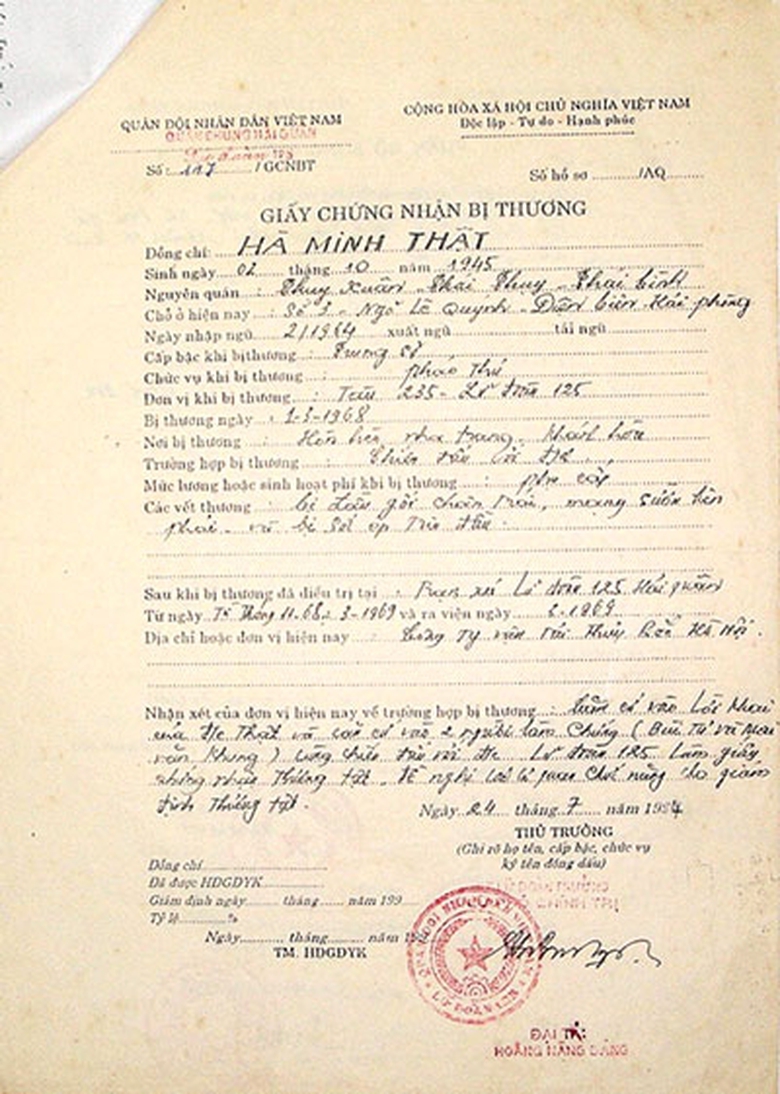 QUÂN ĐỘI NHÂN DÂN VIỆT NAM
QUÂN CHỦNG HẢI QUÂN
Số: 117 / GCNBT
CỘNG HÒA XÃ HỘI CHỦ NGHĨA VIỆT NAM
Độc lập - Tự do - Hạnh phúc
Số hồ sơ ............/AQ.........
GIẤY CHỨNG NHẬN BỊ THƯƠNG
Đồng chí: HÀ MINH THẬT
Sinh ngày 02 tháng 10 năm 1945
Nguyên quán : Thụy Xuân - Thái Thụy - Thái Bình
Chỗ ở hiện nay : Số 3 - Ngõ Lê Quýnh - Điện Biên Hải phòng
Ngày nhập ngũ 2/1964 xuất ngũ tái ngũ
Cấp bậc khi bị thương : Trung sĩ
Chức vụ khi bị thương : pháo thủ
Đơn vị khi bị thương : Tàu 235 - Lữ đoàn 125
Bị thương ngày : 1-3-1968
Nơi bị thương : Hòn hèo, nha trang, Khánh hòa
Trường hợp bị thương : Chiến đấu với
Mức lương hoặc sinh hoạt phí khi bị thương : phụ cấp
Các vết thương : bị đầu gối chân trái, mạng sườn bên
phải và bị sức ép trên đầu.
Sau khi bị thương đã điều trị tại : Lữ đoàn 125 Hải quân
Từ ngày Từ Tháng 11-68 3-1969 và ra viện ngày -1969
Địa chỉ hoặc đơn vị hiện nay : Công Ty vận Tải Thủy Bắc Hà Nội.
Nhận xét của đơn vị hiện nay về trường hợp bị thương : Căn cứ vào Lời khai
của đ/c Thật và căn cứ vào 2 người làm Chứng ( Bùi và
văn Khung ) cùng chiến đấu với đ/c. Lữ đoàn 125 Làm giấy
chứng nhận Thương tật. Đề nghị các cơ quan Chức năng cho giám
định Thương tật.
Ngày 24 tháng 7 năm 1994
THỦ TRƯỞNG
(Ghi rõ họ tên, cấp bậc, chức vụ
ký tên đóng dấu)
Đồng chí
Đã được HDGDYK
Giám định ngày tháng năm 199
Tỷ lệ %
Ngày tháng năm 19
TM. HDGDYK
ĐẠI TÁ:
HOÀNG NĂNG ĐẢNG